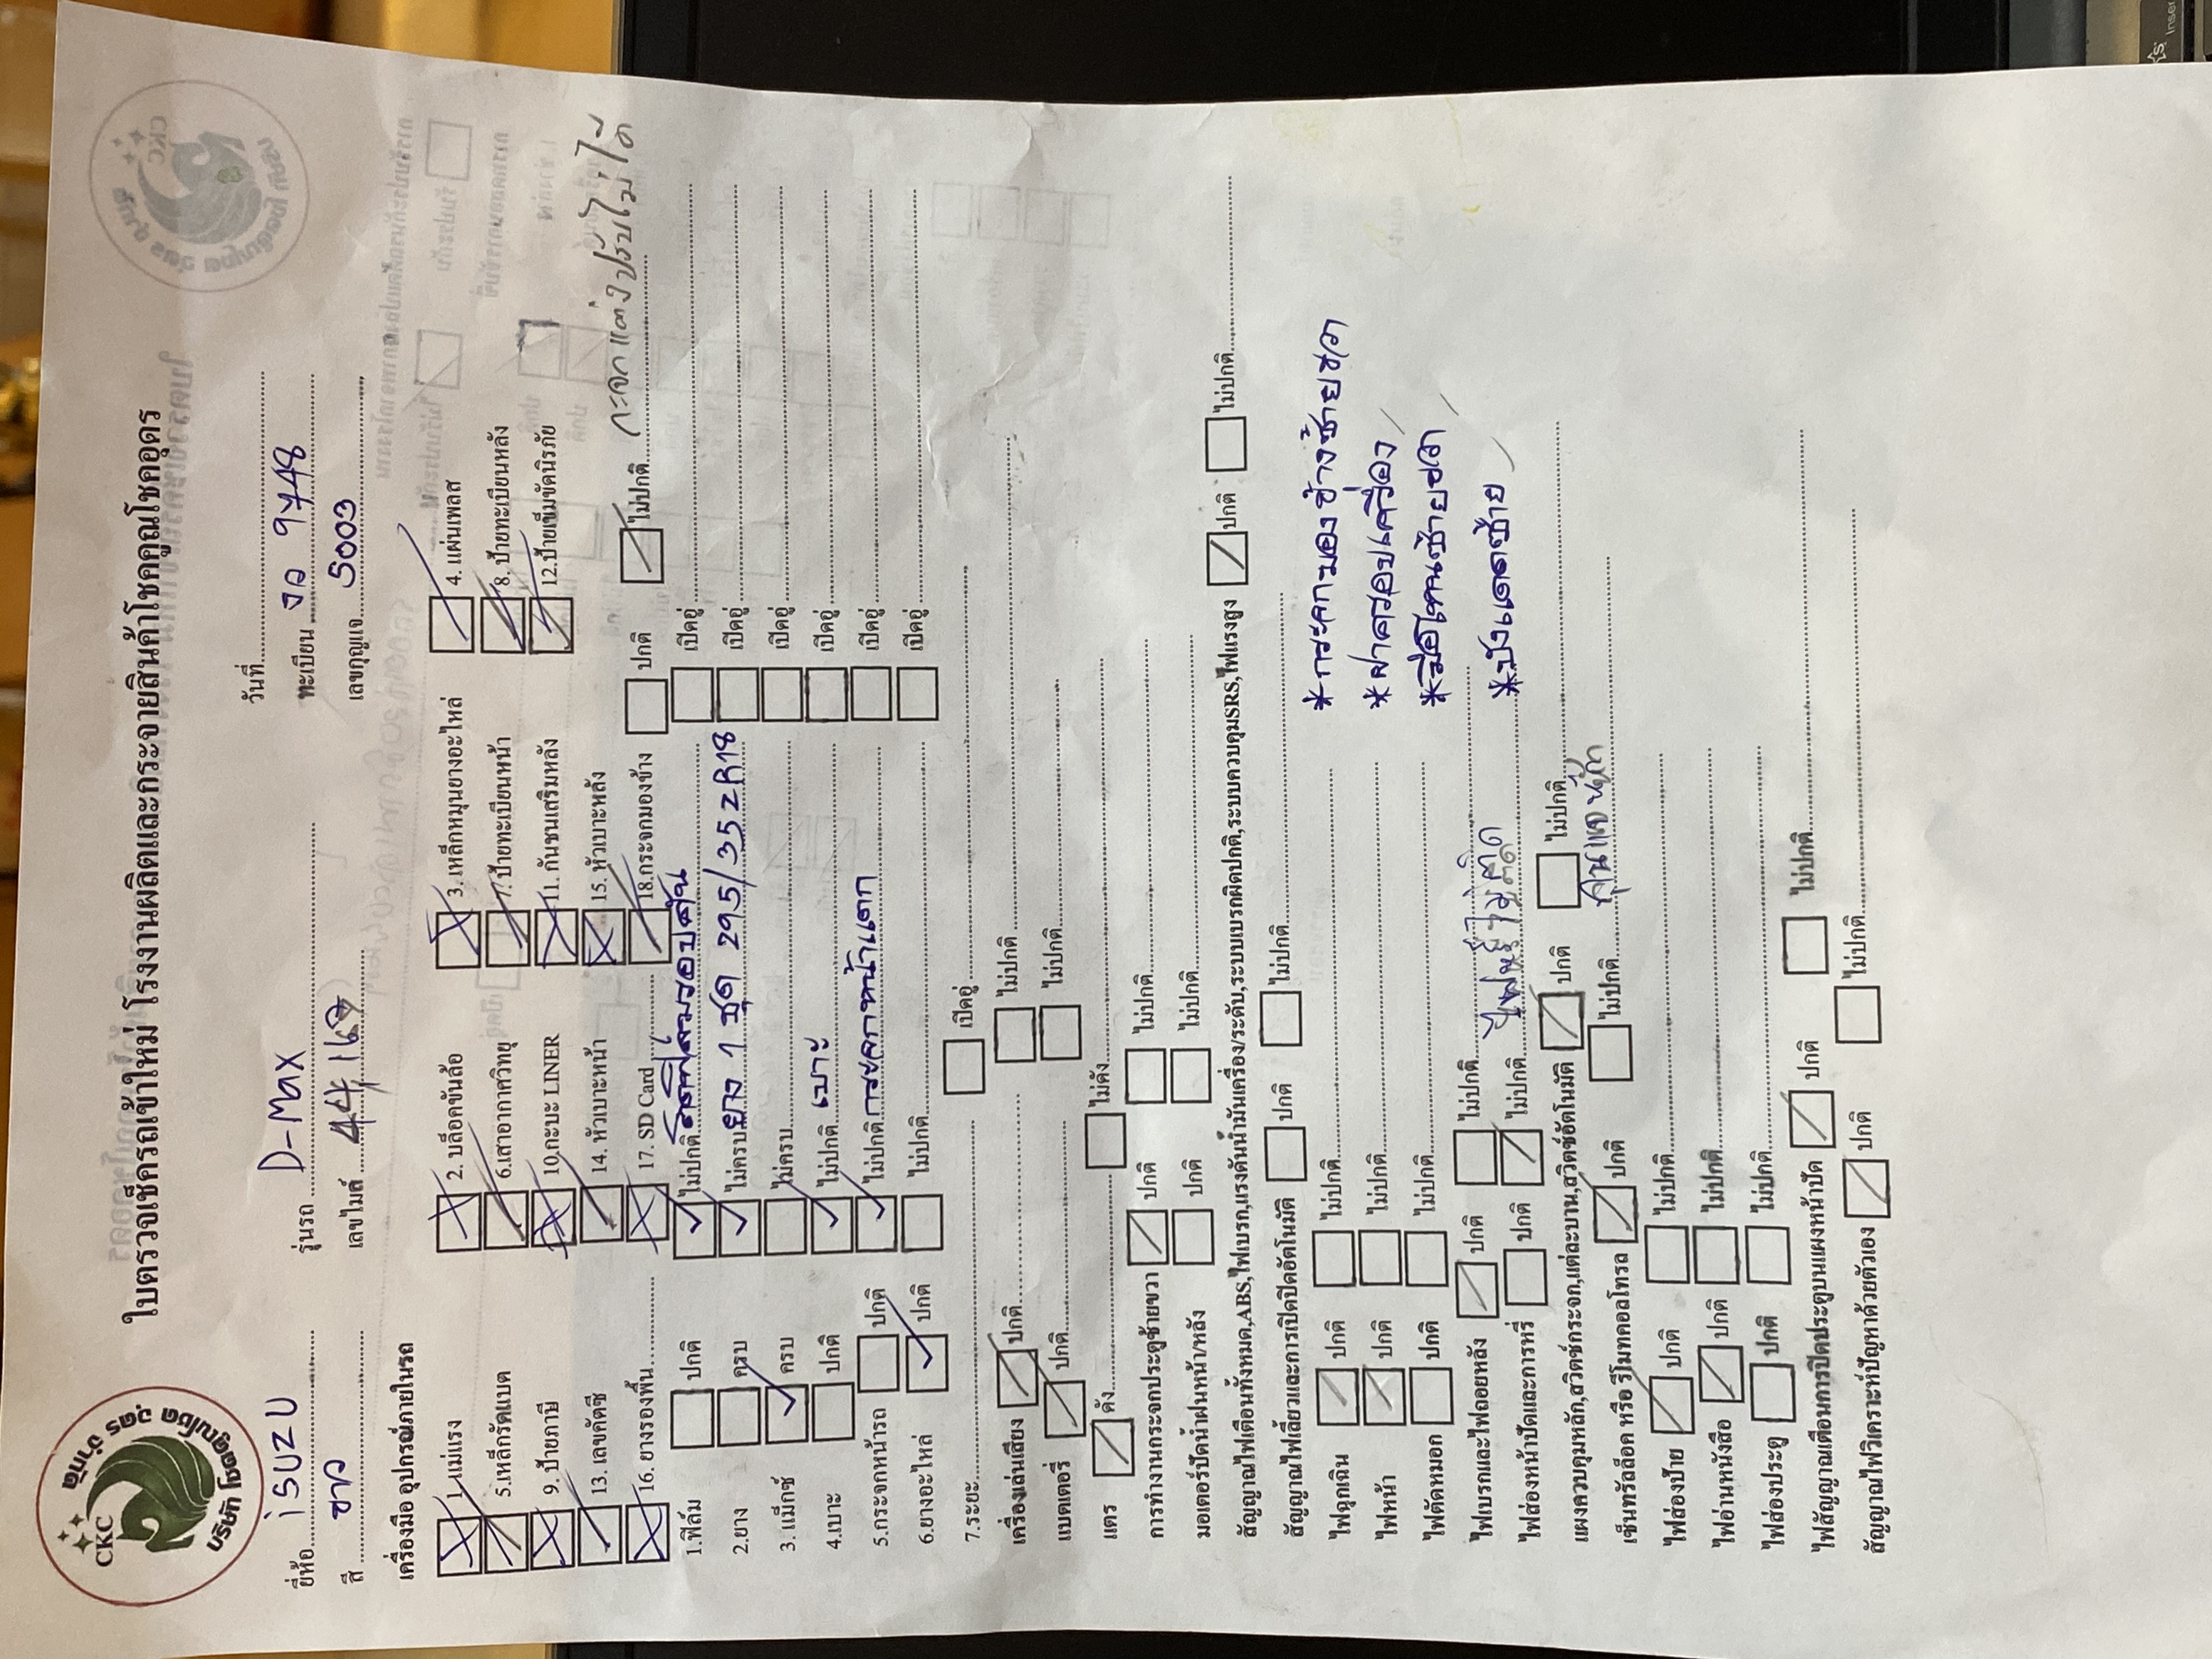 บริษัท โชคคูณโชค อุดร จำกัด
CKC
ใบตรวจเช็ครถเข้าใหม่ โรงงานผลิตและกระจายสินค้าโชคคูณโชคอุดร
วันที่
ยี่ห้อ iSUZU รุ่นรถ D-Max ทะเบียน 9748
สี ขาว เลขไมล์ เลขกุญแจ 5003
เครื่องมือ อุปกรณ์ภายในรถ
1. แม่แรง 2. บล็อคขันล้อ 3. เหล็กหมุนยางอะไหล่ 4. แผ่นเพลส
5.เหล็กรัดแบต 6.เสาอากาศวิทยุ 7. ป้ายทะเบียนหน้า 8. ป้ายทะเบียนหลัง
9. ป้ายภาษี 10.กะบะ LINER 11. กันชนเสริมหลัง 12.ป้ายเข็มขัดนิรภัย
13. เลขคัตซี 14. หัวเบาะหน้า 15. หัวเบาะหลัง
16. ยางรองพื้น 17. SD Card 18.กระจกมองข้าง ปกติ ไม่ปกติ กะจกแต่งปรับไม่ได้
1.ฟิล์ม ปกติ ไม่ปกติ ติดฟิล์มรอบคัน เปิดอู่
2.ยาง ครบ ไม่ครบ ยาง 1 ชุด 295/35ZR18 เปิดอู่
3. แม็กซ์ ครบ ไม่ครบ เปิดอู่
4.เบาะ ปกติ ไม่ปกติ เบาะ เปิดอู่
5.กระจกหน้ารถ ปกติ ไม่ปกติ กระจกหน้าแตก เปิดอู่
6.ยางอะไหล่ ปกติ ไม่ปกติ เปิดอู่
7.ระยะ เปิดอู่
เครื่องเล่นเสียง ปกติ ไม่ปกติ
แบตเตอรี่ ปกติ ไม่ปกติ
แตร ดัง ไม่ดัง
การทำงานกระจกประตูซ้ายขวา ปกติ ไม่ปกติ
มอเตอร์ปัดน้ำฝนหน้า/หลัง ปกติ ไม่ปกติ
สัญญาณไฟเตือนทั้งหมด,ABS,ไฟเบรก,แรงดันน้ำมันเครื่อง/ระดับ,ระบบเบรกผิดปกติ,ระบบควบคุมSRS,ไฟแรงสูง ปกติ ไม่ปกติ
สัญญาณไฟเลี้ยวและการเปิดปิดอัตโนมัติ ปกติ ไม่ปกติ
ไฟฉุกเฉิน ปกติ ไม่ปกติ *กระจกมองข้างซ้ายขวา
ไฟหน้า ปกติ ไม่ปกติ *ฝาครอบเครื่อง
ไฟตัดหมอก ปกติ ไม่ปกติ
ไฟเบรกและไฟถอยหลัง ปกติ ไม่ปกติ
ไฟส่องหน้าปัดและการหรี่ ปกติ ไม่ปกติ ไฟหรี่ไม่ติด *บังแดดซ้าย
แผงควบคุมหลัก,สวิตซ์กระจก,แต่ละบาน,สวิตซ์อัตโนมัติ ปกติ ไม่ปกติ
เซ็นทรัลล็อค หรือ รีโมทคอลโทรล ปกติ ไม่ปกติ
ไฟส่องป้าย ปกติ ไม่ปกติ
ไฟอ่านหนังสือ ปกติ ไม่ปกติ
ไฟส่องประตู ปกติ ไม่ปกติ
ไฟสัญญาณเตือนการปิดประตูบนแผงหน้าปัด ปกติ ไม่ปกติ
สัญญาณไฟวิเคราะห์ปัญหาด้วยตัวเอง ปกติ ไม่ปกติ